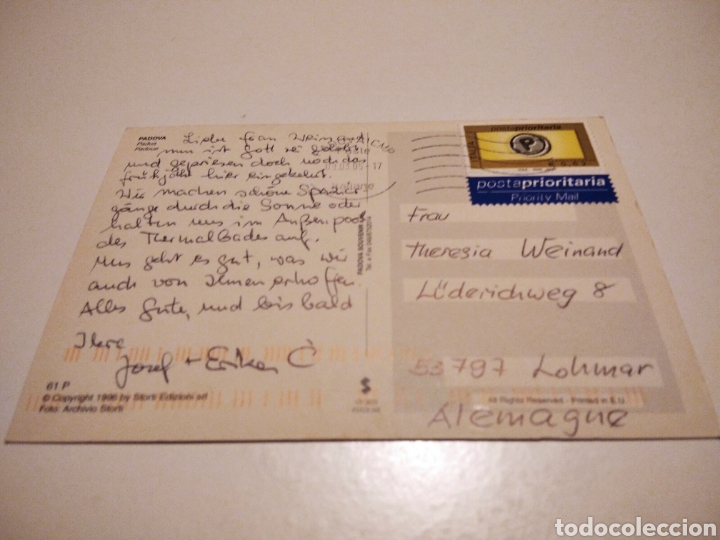 PADOVA
Padua
Padoue
Liebe Frau Weinand
nun ist Gott sei gelobt
und gepriesen doch noch das
Frühjahr hier eingekehrt.
Wir machen schöne Spazier
gänge durch die Sonne oder
halten uns im Außenpool
des Thermalbades auf.
Uns geht es gut, was wir
auch von Ihnen erhoffen.
Alles Gute, und bis bald
Ihre
Josef + Erika C
61 P
© Copyright 1996 by Storti Edizioni srl
Foto: Archivio Storti
PADOVA SOUVENIR
S
postaprioritaria
P
€ 0,62
postaprioritaria
Priority Mail
Frau
Theresia Weinand
Lüderichweg 8
53797 Lohmar
All Rights Reserved - Printed in E.U.
Alemagne
todocoleccion